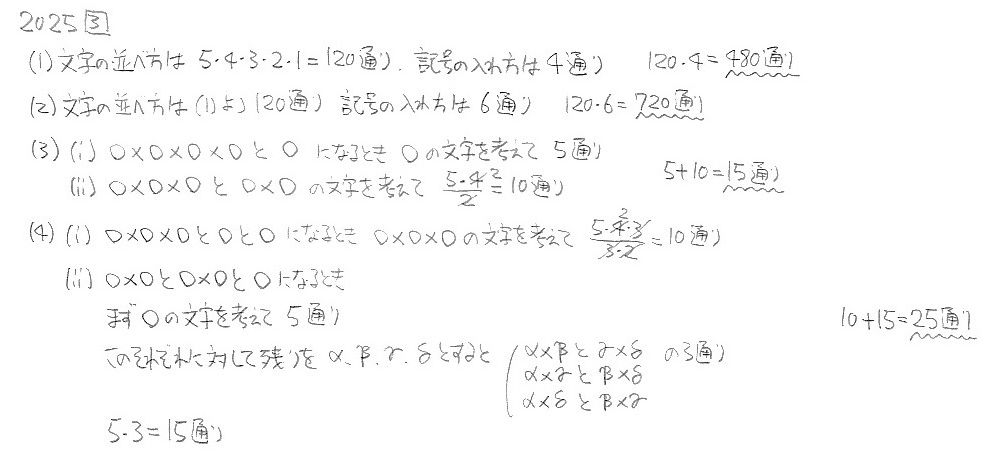 2025 ③
(1) 文字の並べ方は 5・4・3・2・1=120通り. 記号の入れ方は 4通り 120・4=480通り
(2) 文字の並べ方は (1)より 120通り 記号の入れ方は 6通り 120・6=720通り
(3) (i) ○×○×○×○と ○ になるとき ○の文字を考えて 5通り
(ii) ○×○×○ と ○×○ の文字を考えて 5・4/2=10通り 2
5+10=15通り
(4) (i) ○×○×○と○と○ になるとき ○×○×○の文字を考えて 5・4・3/3・2=10通り 2
(ii) ○×○と○×○と○になるとき
まず○の文字を考えて 5通り
このそれぞれに対して残りを α、β、γ、δとすると α×βとγ×δ の3通り
α×γとβ×δ
α×δとβ×γ
5・3=15通り
10+15=25通り